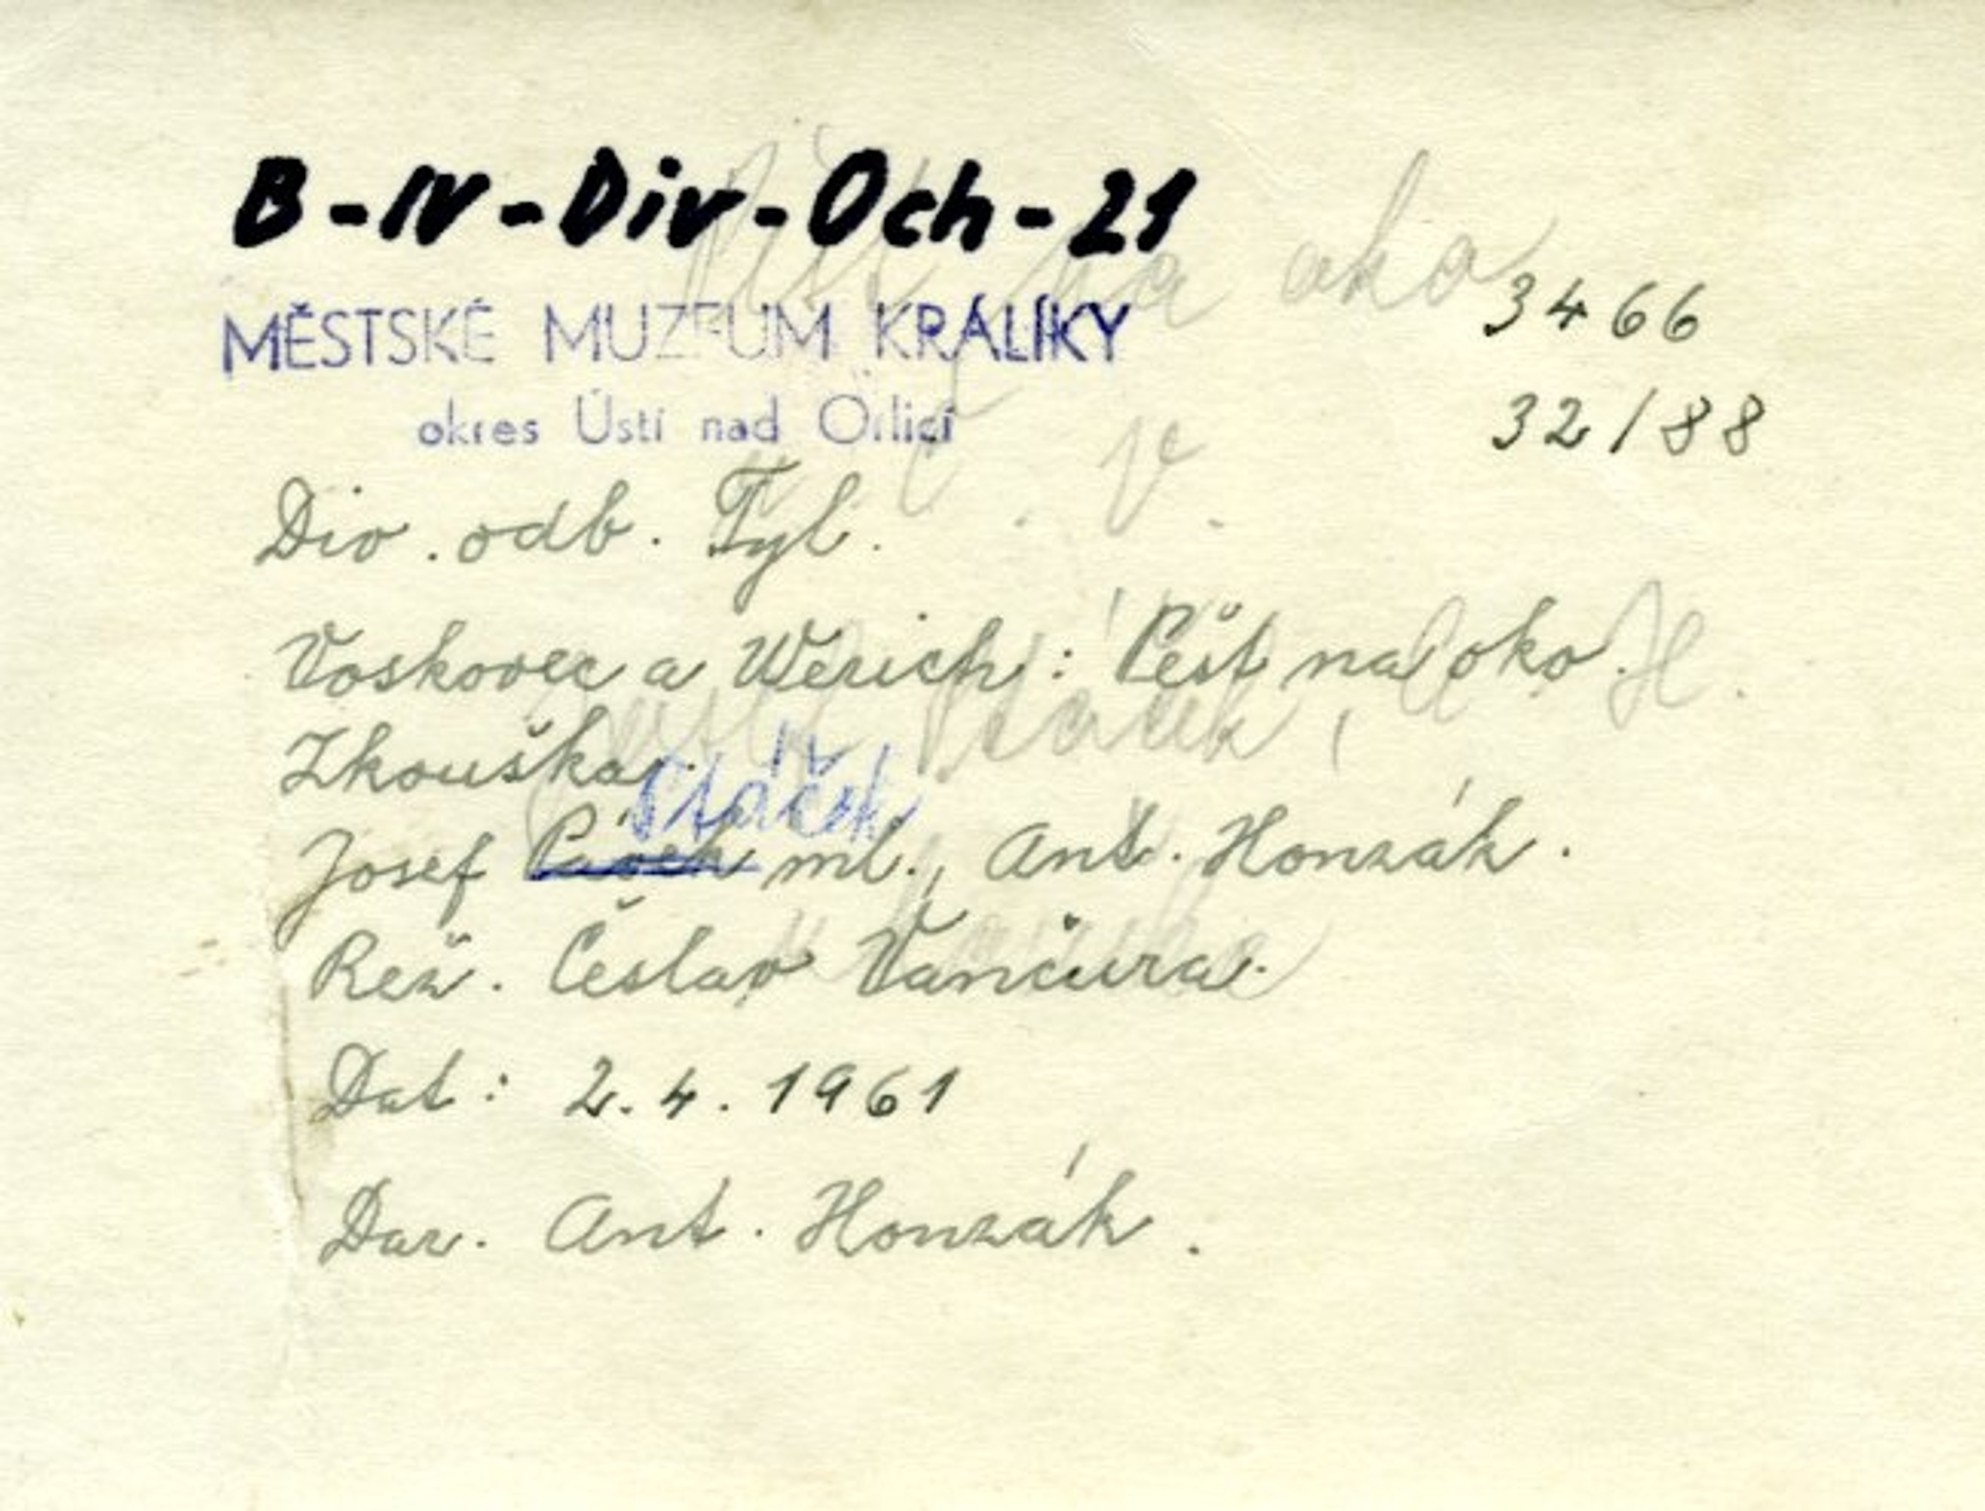 B-IV-Div-Och-21
MĚSTSKÉ MUZEUM KRÁLÍKY
okres Ústí nad Orlicí
3466
32/88
Div. odb. Tyl.
Voskovec a Werich: Pěst na oko.
Zkouška.
Ptáček
Josef Páček ml., Ant. Honzák.
Rež. Česlav Vančura.
Dat: 2.4.1961
Dar. Ant. Honzák.